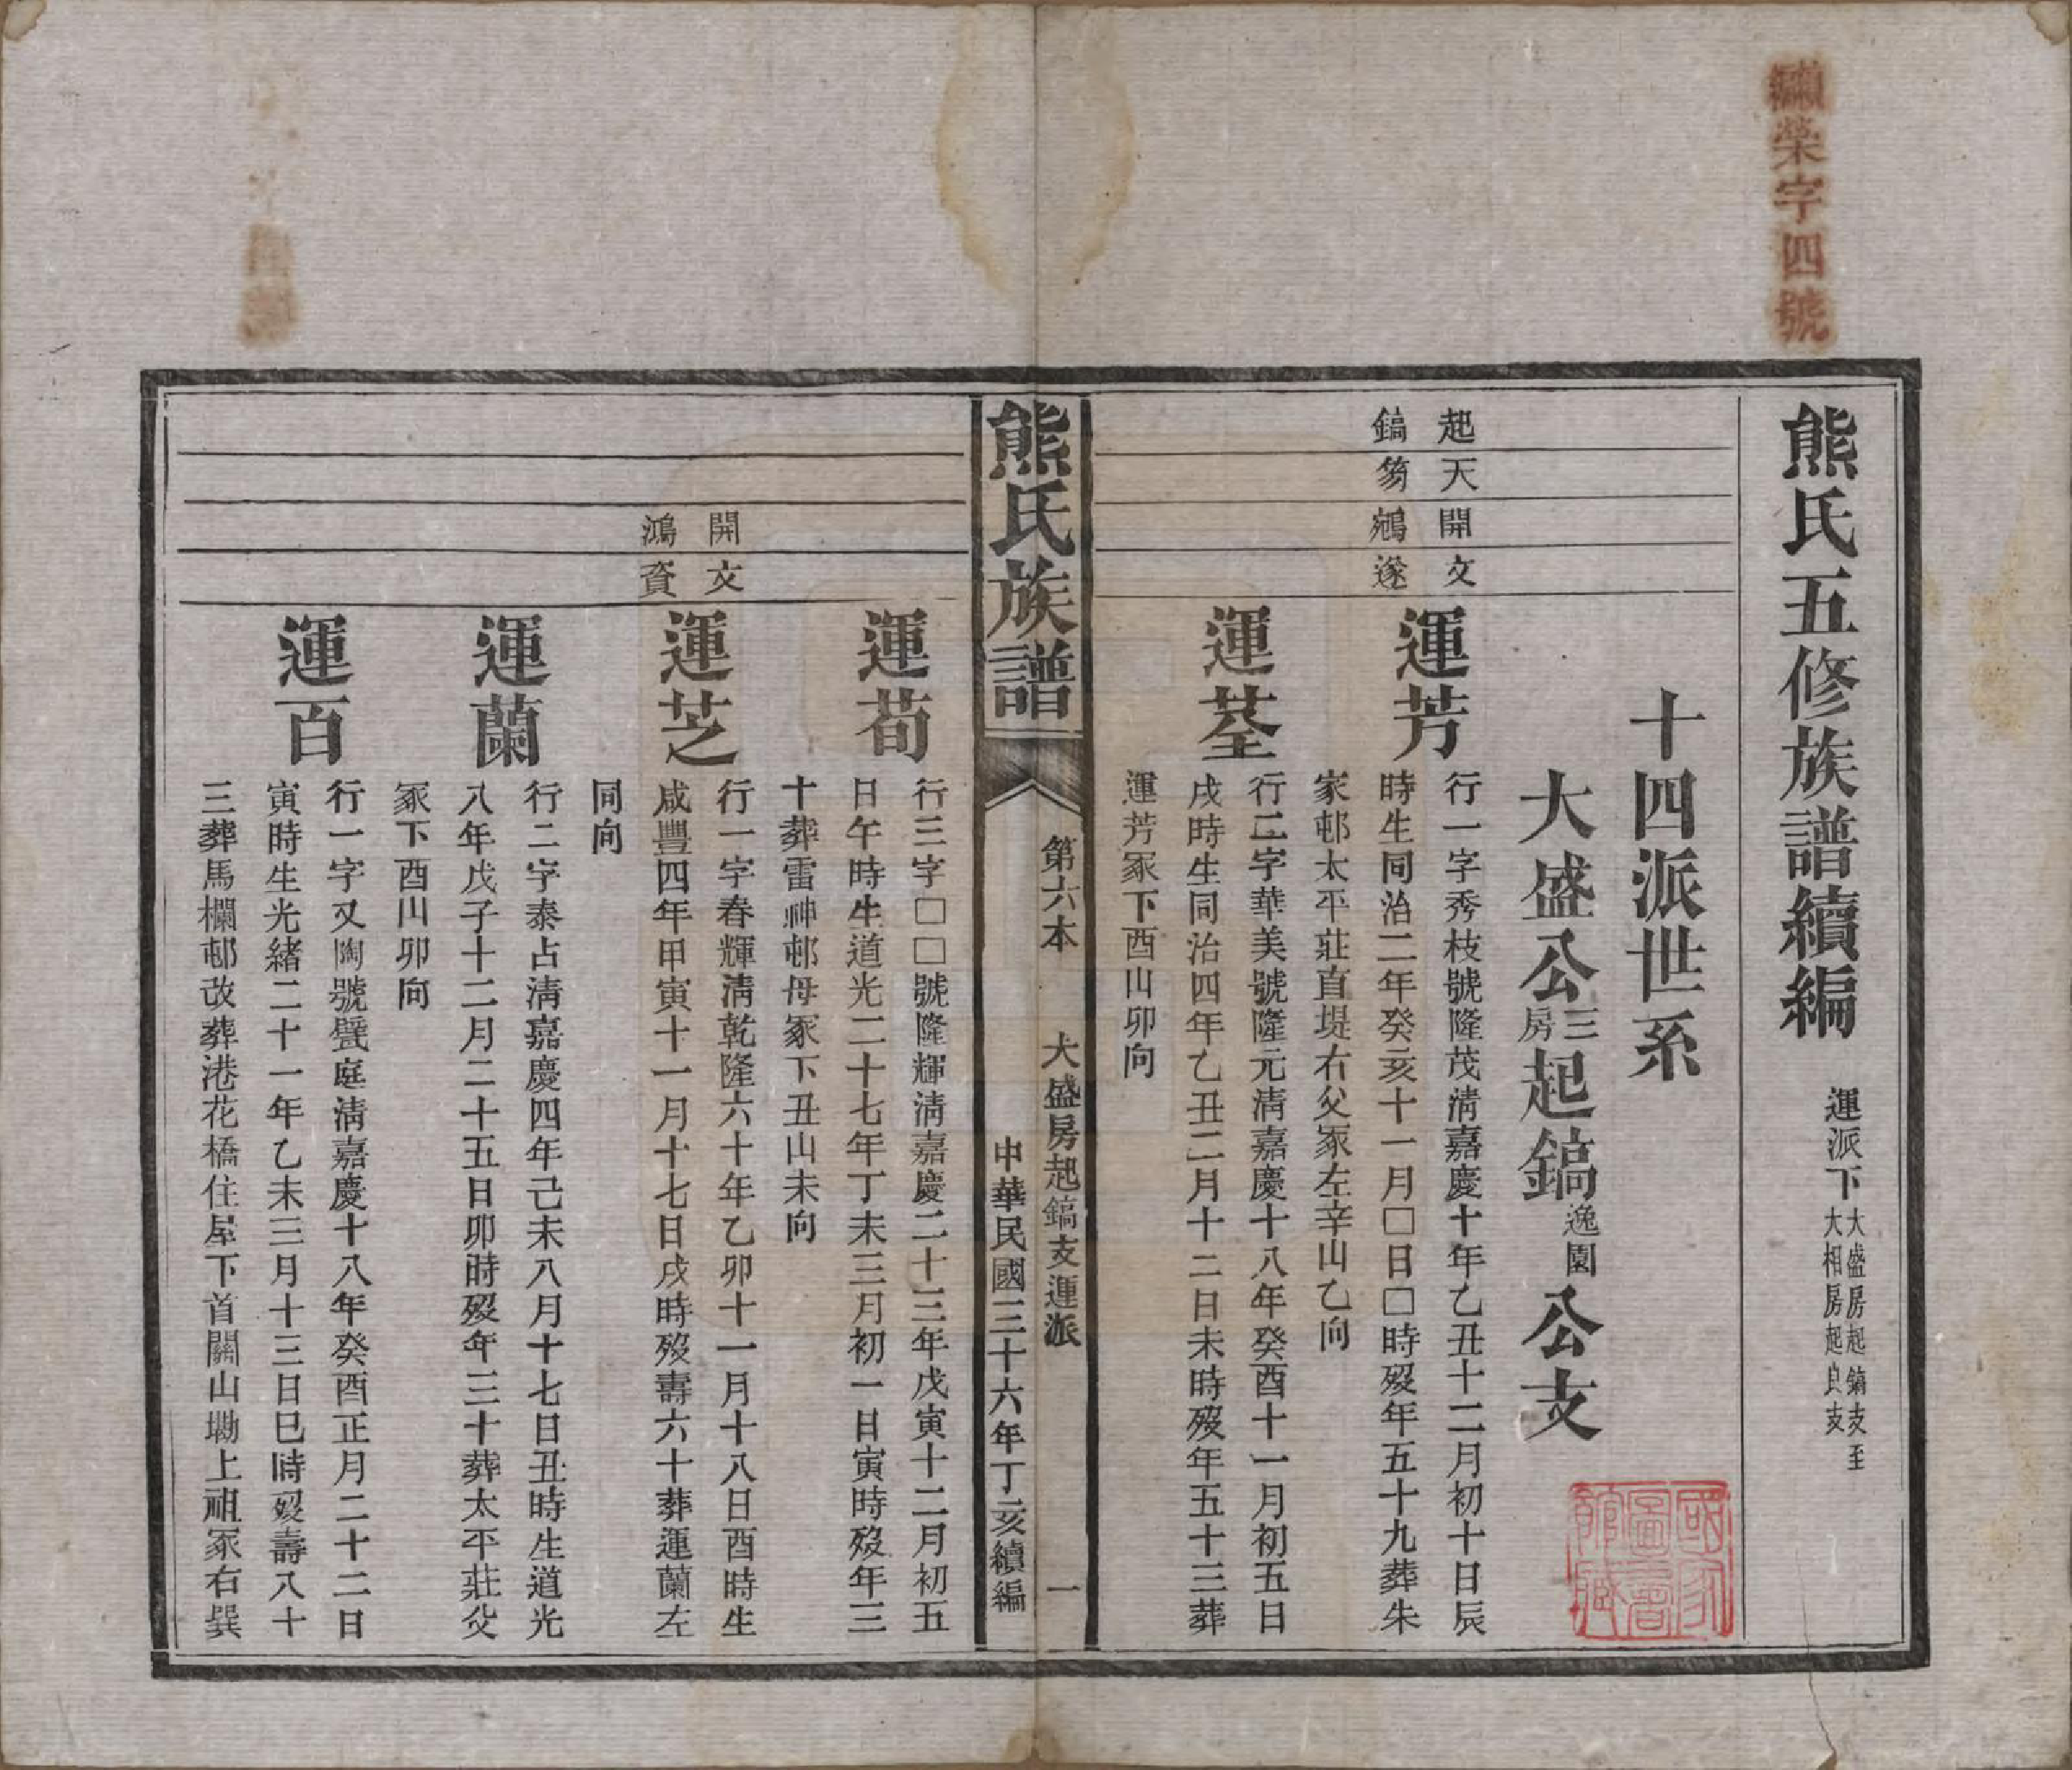 纘榮字四號
熊氏五修族譜續編 運派下 大盛房起鎬支至 大相房起良支
十四派世系
大盛公三房起鎬逸園公支
起鎬
天芻
開鵷
文遂
運芳
行一字秀枝號隆茂淸嘉慶十年乙丑十二月初十日辰
時生同治二年癸亥十一月□日□時歿年五十九葬朱
家邨太平莊直堤右父冢左辛山乙向
運荃
行二字華美號隆元淸嘉慶十八年癸酉十一月初五日
戌時生同治四年乙丑二月十二日未時歿年五十三葬
運芳冢下酉山卯向
熊氏族譜
第六本 大盛房起鎬支運派 一
中華民國三十六年丁亥續編
運荀
行三字□□號隆輝淸嘉慶二十三年戊寅十二月初五
日午時生道光二十七年丁未三月初一日寅時歿年三
十葬雷神邨母冢下丑山未向
開鴻
文資
運芝
行一字春輝淸乾隆六十年乙卯十一月十八日酉時生
咸豐四年甲寅十一月十七日戌時歿壽六十葬運蘭左
同向
運蘭
行二字泰占淸嘉慶四年己未八月十七日丑時生道光
八年戊子十二月二十五日卯時歿年三十葬太平莊父
冢下酉山卯向
運百
行一字又陶號甓庭淸嘉慶十八年癸酉正月二十二日
寅時生光緒二十一年乙未三月十三日巳時歿壽八十
三葬馬欄邨改葬港花橋住屋下首關山墈上祖冢右巽
國家圖書館藏